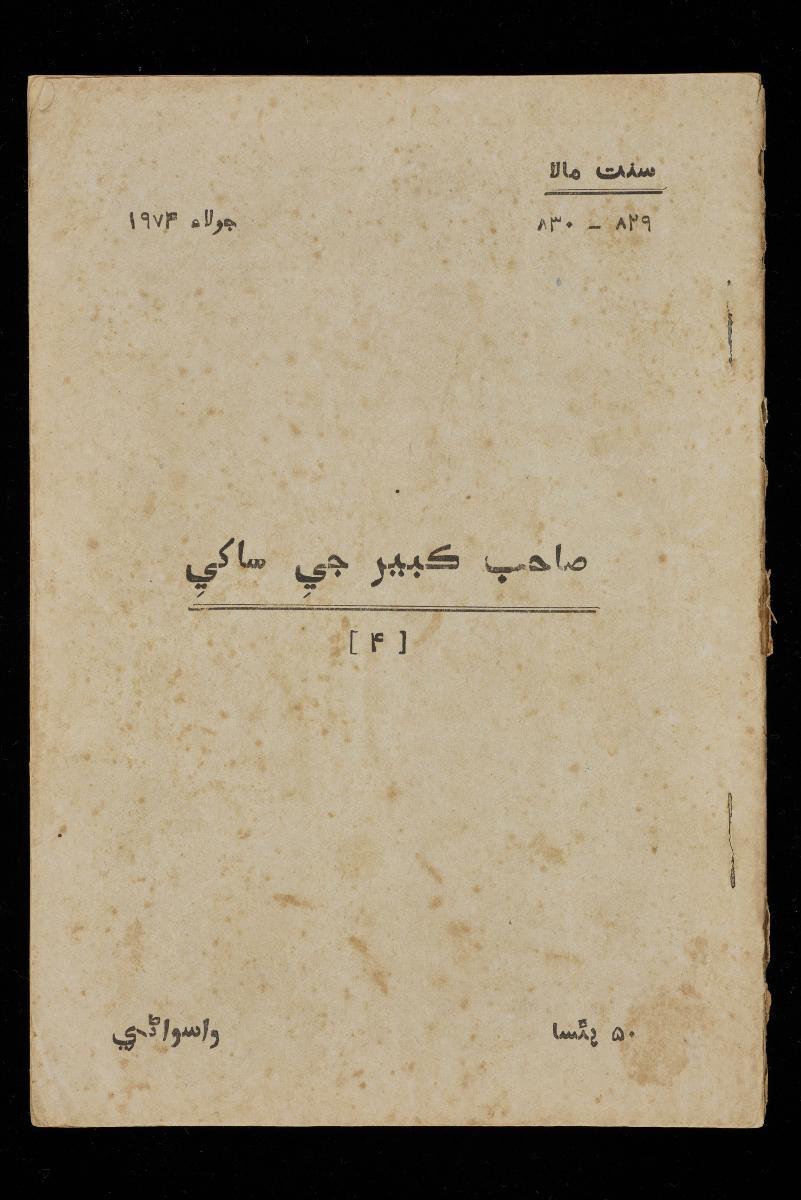 سنت مالا
۸۲۹ – ۸۳۰
جولاءِ ۱۹۷۴
صاحب ڪبير جيِ ساکيِ
[ ۴ ]
۵۰ پئسا
واسواڻي